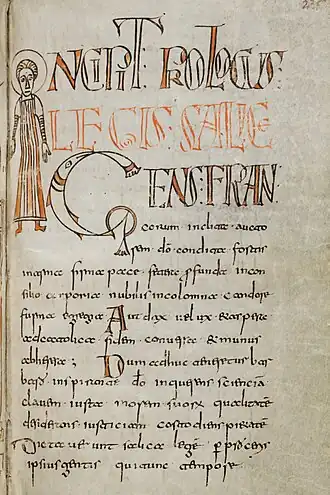 INCIPIT PROLOGUS
LEGIS SALICE
GENS FRAN
corum inclita aucto
rem dō condita fortis
in arma firma pace fetere profunda in con
silio corporia nubilis incolomna candore
forma egregia Audax velux & aspere
ad catolica fidem conversa & munus
ab herese; Dum adhuc bar
bara inspirante dō inquerens sciencia
clavem iuxta morem suorum qualitate
desiderans iusticiam costodiens pietate
Dictaverunt salica lege
ipsius gentis qui tunc tempore